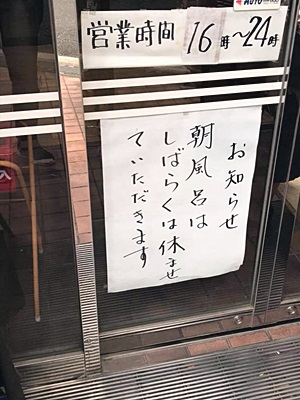 営業時間 16時～24時
お知らせ
朝風呂は
しばらくは休ませ
ていただきます